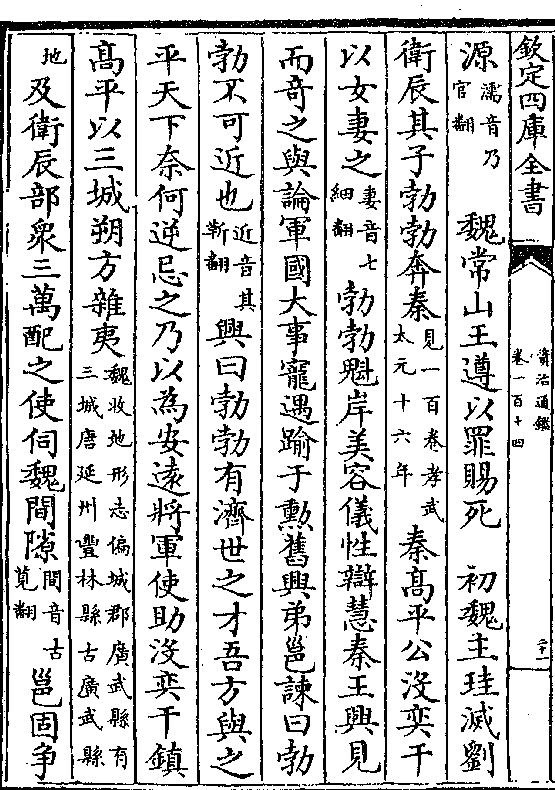 欽定四庫全書 資治通鑑 卷一百十四 二十一
源濡音乃官翻 魏常山王遵以罪賜死 初魏主珪滅劉
衛辰其子勃勃奔秦見一百卷孝武太元十六年 秦髙平公沒奕干
以女妻之妻音七細翻勃勃魁岸美容儀性辯慧秦王興見
而奇之與論軍國大事寵遇踰于勲舊興弟邕諫曰勃
勃不可近也近音其靳翻興曰勃勃有濟世之才吾方與之
平天下奈何逆忌之乃以為安遠將軍使助沒奕干鎮
髙平以三城朔方雜夷魏收地形志偏城郡廣武縣有三城唐延州豐林縣古廣武縣
地及衛辰部衆三萬配之使伺魏間隙間音古莧翻邕固爭